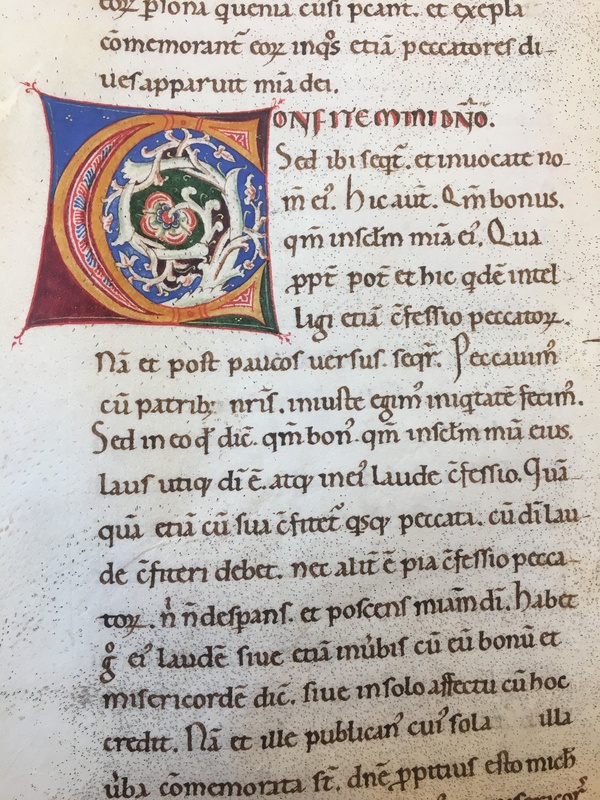 eoꝝ ꝑsona quenia cūsi pcant. et exēpla
cōmemorant̄ eoꝝ inqͥs etiā peccatores di-
ues apparuit miā dei.
CONFITEMINI DÑO.
Sed ibi seqt̄. et inuocate no-
m̄ ei᾽. hic aut̄. Qm̄ bonus.
qm̄ inscłm miā ei᾽. Qua
ꝓpt̄ pot̄ et hic qdē intel
ligi etiā c̄fessio peccatoꝝ.
Nā et post paucos uersus. seqr̄. Peccauim᾽
cū patrib; nr̄is. iniuste egim᾽ iniqtatē fecim᾽.
Sed in eo qđ dic̄. qm̄ bon᾽. qm̄ inscłm miā eius.
laus utiqꝫ dī ē. atqꝫ in ei᾽ laude c̄fessio. Quā-
quā etiā cū sua c̄fitet᾽ qsqꝫ peccata. cū dī lau-
de c̄fiteri debet. nec alit̄ ē pia c̄fessio pecca-
toꝝ. n̄ n̄ desꝑans. et poscens miam dī. habet
g̊ ei᾽ laudē siue etiā inu̇bis cū eū bonū et
misericordē dic̄. siue insolo affectu cū hoc
credit. Nā et ille publican᾽ cui᾽ sola illa
u̇ba cōmemorata st̄. dn̄e ꝓpitius esto mich